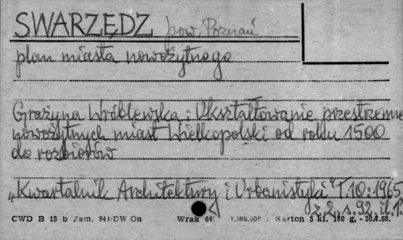 SWARZĘDZ pow. Poznań
plan miasta nowożytnego
Grażyna Wróblewska: Ukształtowanie przestrzenne
nowożytnych miast Wielkopolski od roku 1500
do rozbiorów
"Kwartalnik Architektury i Urbanistyki" T.10:1965
z.2, s.92, il.1.
CWD B 15 b Zam. 841/DW On Wrak 64 Karton 5 kl. 160 g, - 30.I.58.